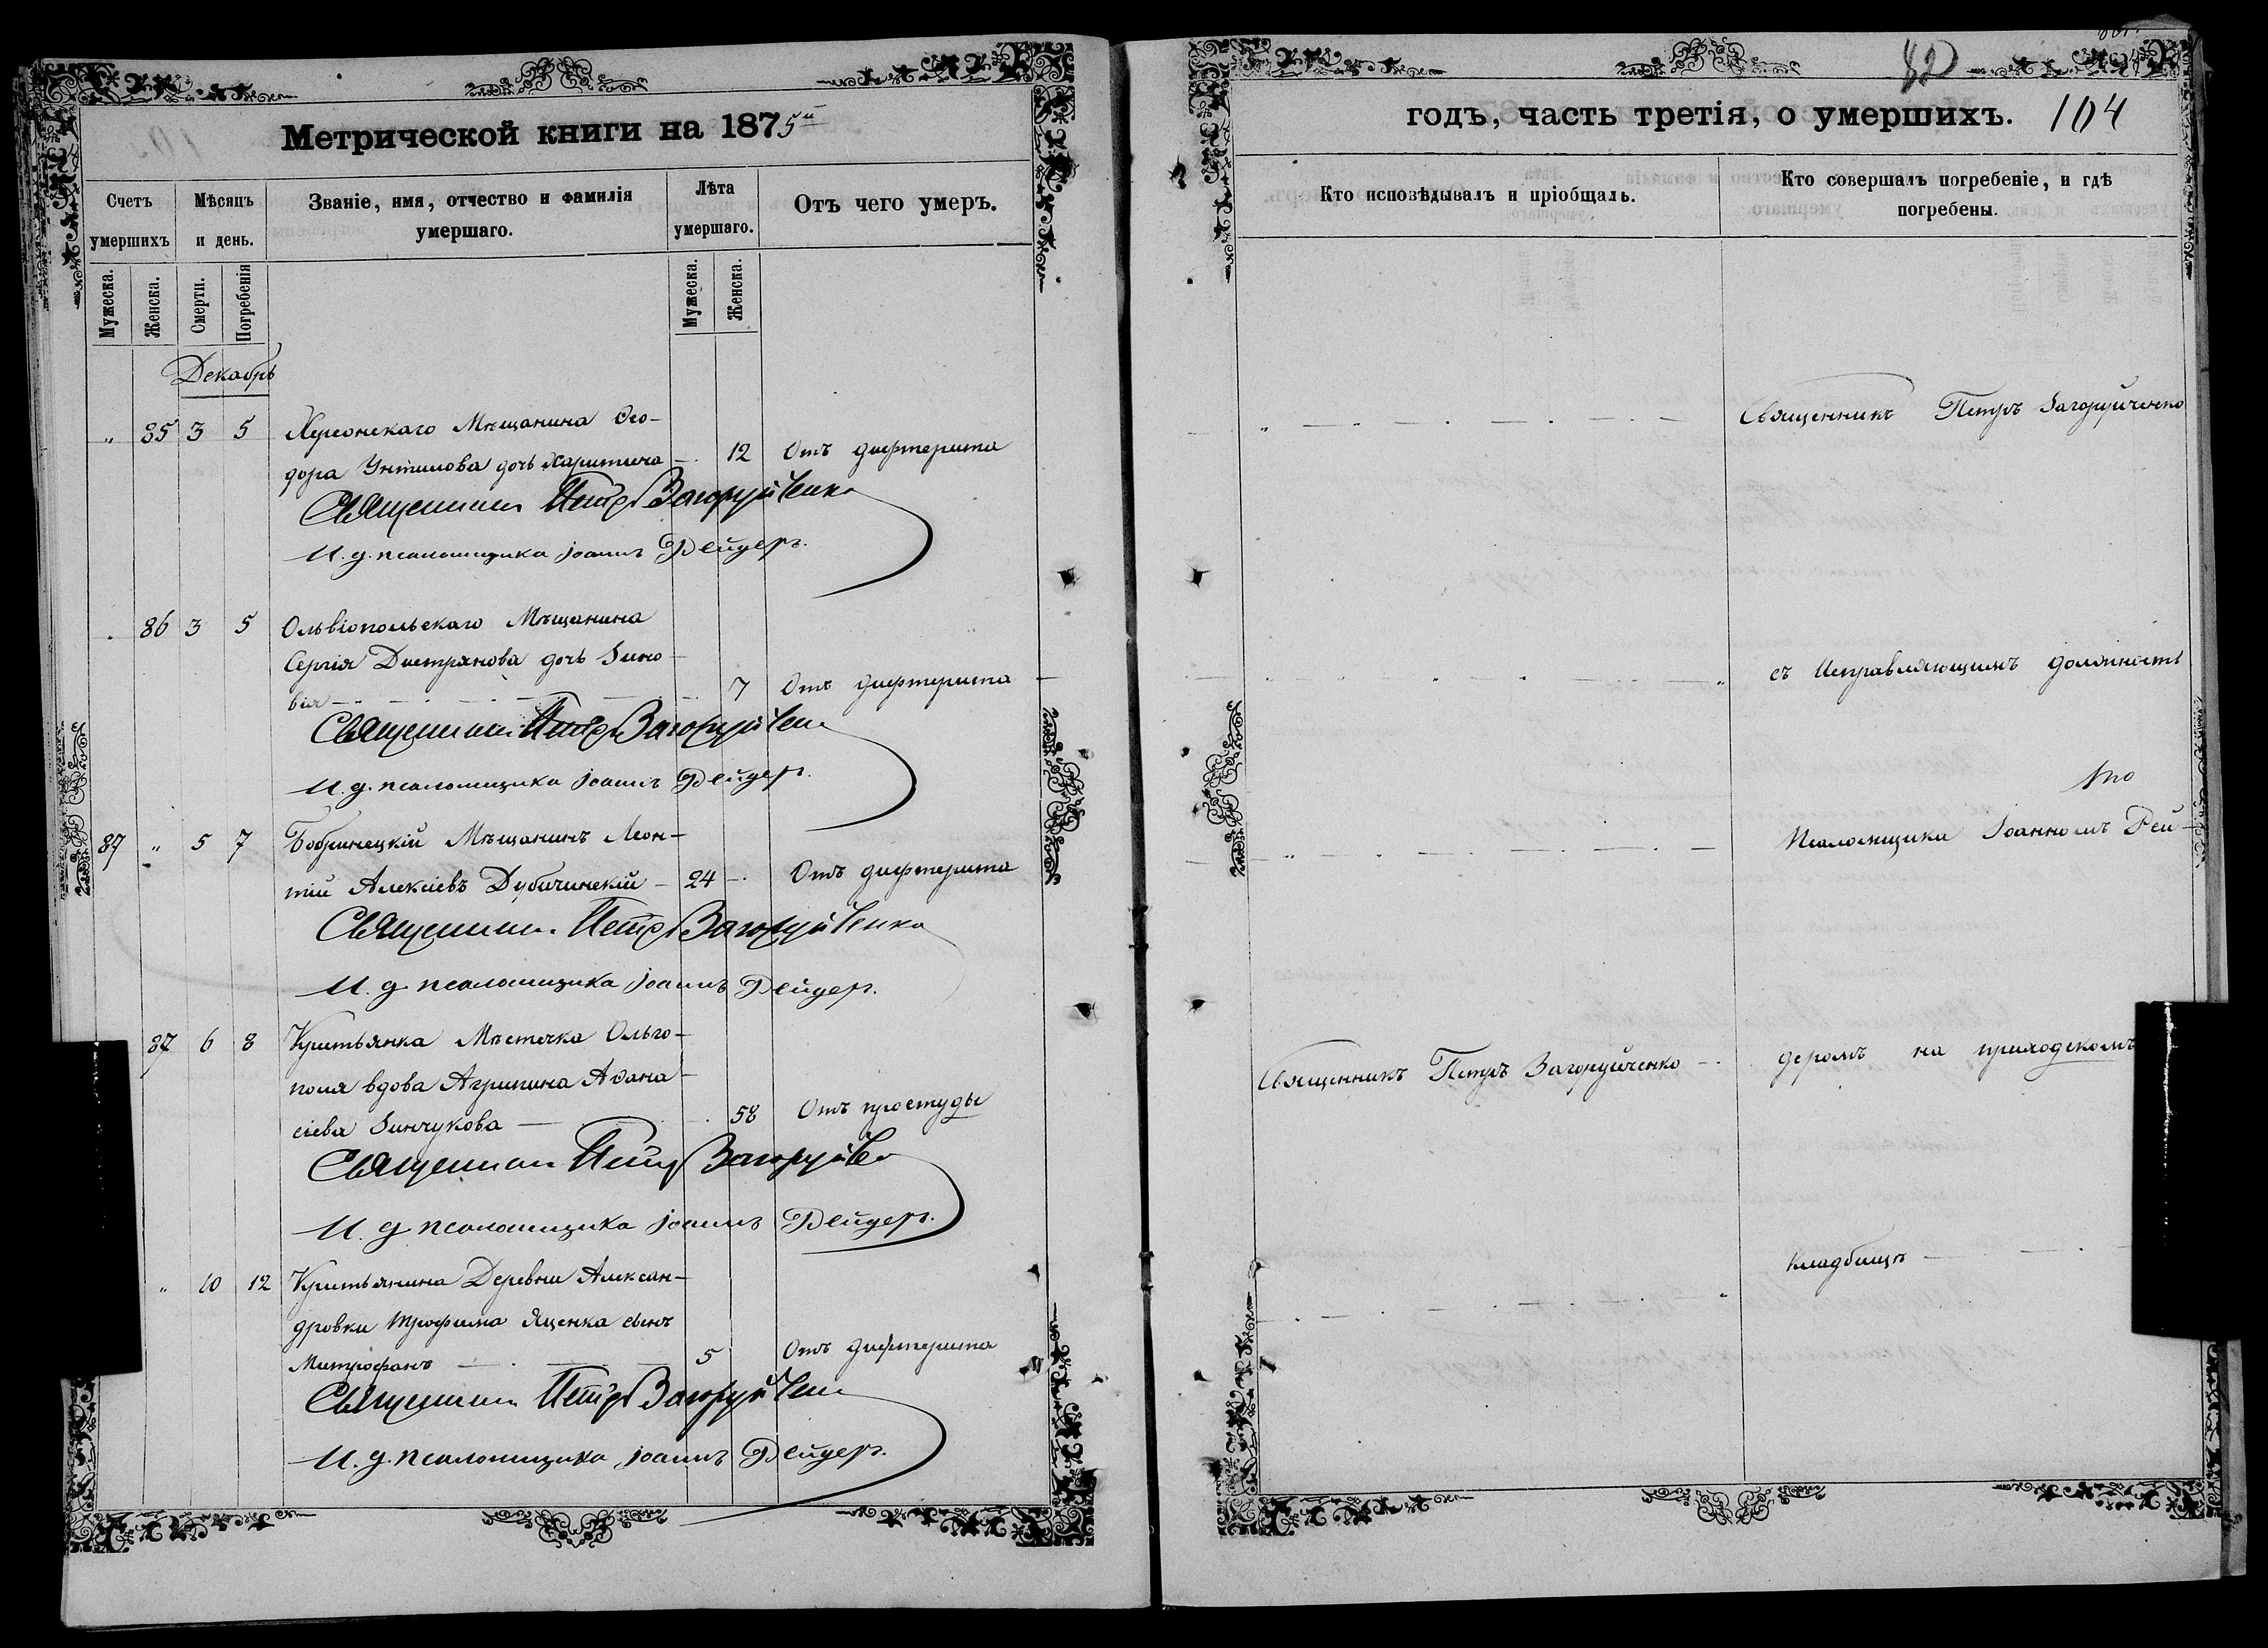 Метрической книги на 1875й
Счетъ умершихъ
Мѣсяцъ и день.
Званіе, имя, отчество и фамилія умершаго.
Лѣта умершаго.
Отъ чего умеръ.
Мужеска.
Женска.
Смерти.
Погребенія
Мужеска.
Женска.
Декабрь
" 85 3 5 Херсонскаго Мѣщанина Ѳео-
дора дочь Харитина 12 Отъ дифтерита
Священникъ Петръ Загоруйченко
И. д. псаломщика Іоаннъ Рейдеръ.
86 3 5 Ольвіопольскаго Мѣщанина
Сергія дочь Зино-
вія 7 Отъ дифтерита
Священникъ Петръ Загоруйченко
И. д. псаломщика Іоаннъ Рейдеръ.
87 " 5 7 Бобринецкій Мѣщанинъ Леон-
тій Алексіевъ Дубачинскій 24 Отъ дифтерита
Священникъ Петръ Загоруйченко
И. д. псаломщика Іоаннъ Рейдеръ.
87 6 8 Крестьянка Мѣстечка Ольго-
поля вдова Агрипина Аѳана-
сіева Зинчукова 58 Отъ простуды
Священникъ Петръ Загоруйченко
И. д. псаломщика Іоаннъ Рейдеръ.
" 10 12 Крестьянина Деревни Алексан-
дровки Трофима Яценка сынъ
Митрофанъ 5 Отъ дифтерита
Священникъ Петръ Загоруйченко
И. д. псаломщика Іоаннъ Рейдеръ.
82
годъ, часть третія, о умершихъ. 104
Кто исповѣдывалъ и пріобщалъ.
Кто совершалъ погребеніе, и гдѣ погребены.
Священникъ Петръ Загоруйченко
съ Исправляющимъ должность
Псаломщика Іоанномъ Рей-
Священникъ Петръ Загоруйченко
деромъ на приходскомъ
Кладбищѣ